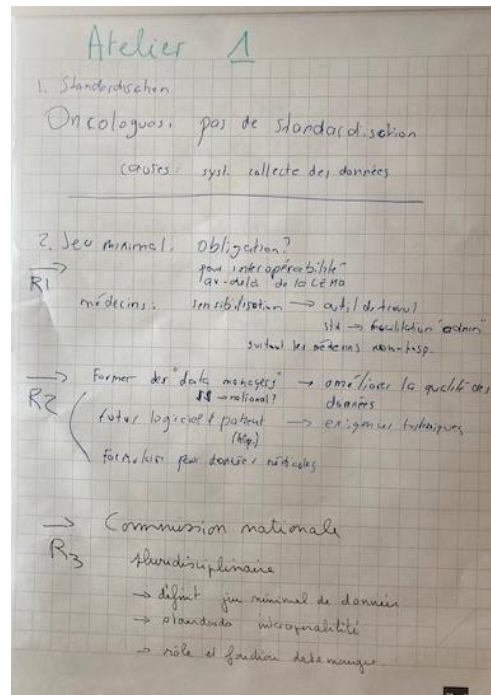 Atelier 1
1. Standardisation
Oncologues: pas de standardisation
causes: syst. collecte des données
2. Jeu minimal: obligation?
pour interopérabilité
R1
au-delà de la
médecins: sensibilisation → outil de travail
std → facilitation "admin"
surtout les médecins non-hosp.
→ Former des "data managers" → améliorer la qualité des
R2
$$ → national?
données
futur logiciel patient → exigences techniques
Formation pour données médicales
→ Commission nationale
R3
pluridisciplinaire
→ définit jeu minimal de données
→ standards
→ rôle et fonction data manager